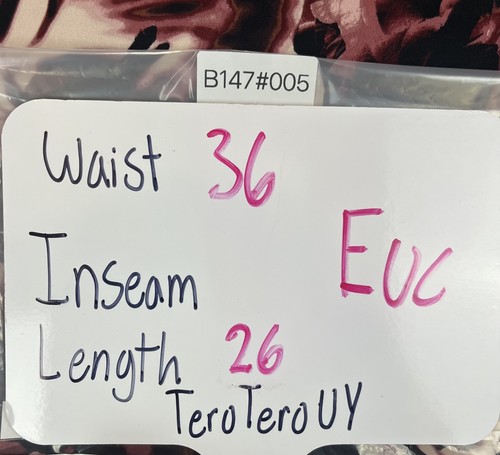 B147#005
Waist 36
EUC
Inseam
Length 26
TeroTeroUY